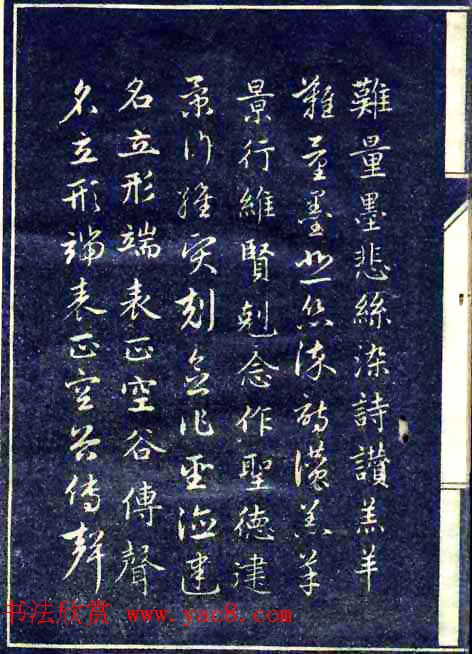 難量墨悲絲染詩讃羔羊
難量墨悲絲染詩讃羔羊
景行維賢剋念作聖德建
景行維賢剋念作聖德建
名立形端表正空谷傳聲
名立形端表正空谷傳聲
书法欣赏 www.yac8.com